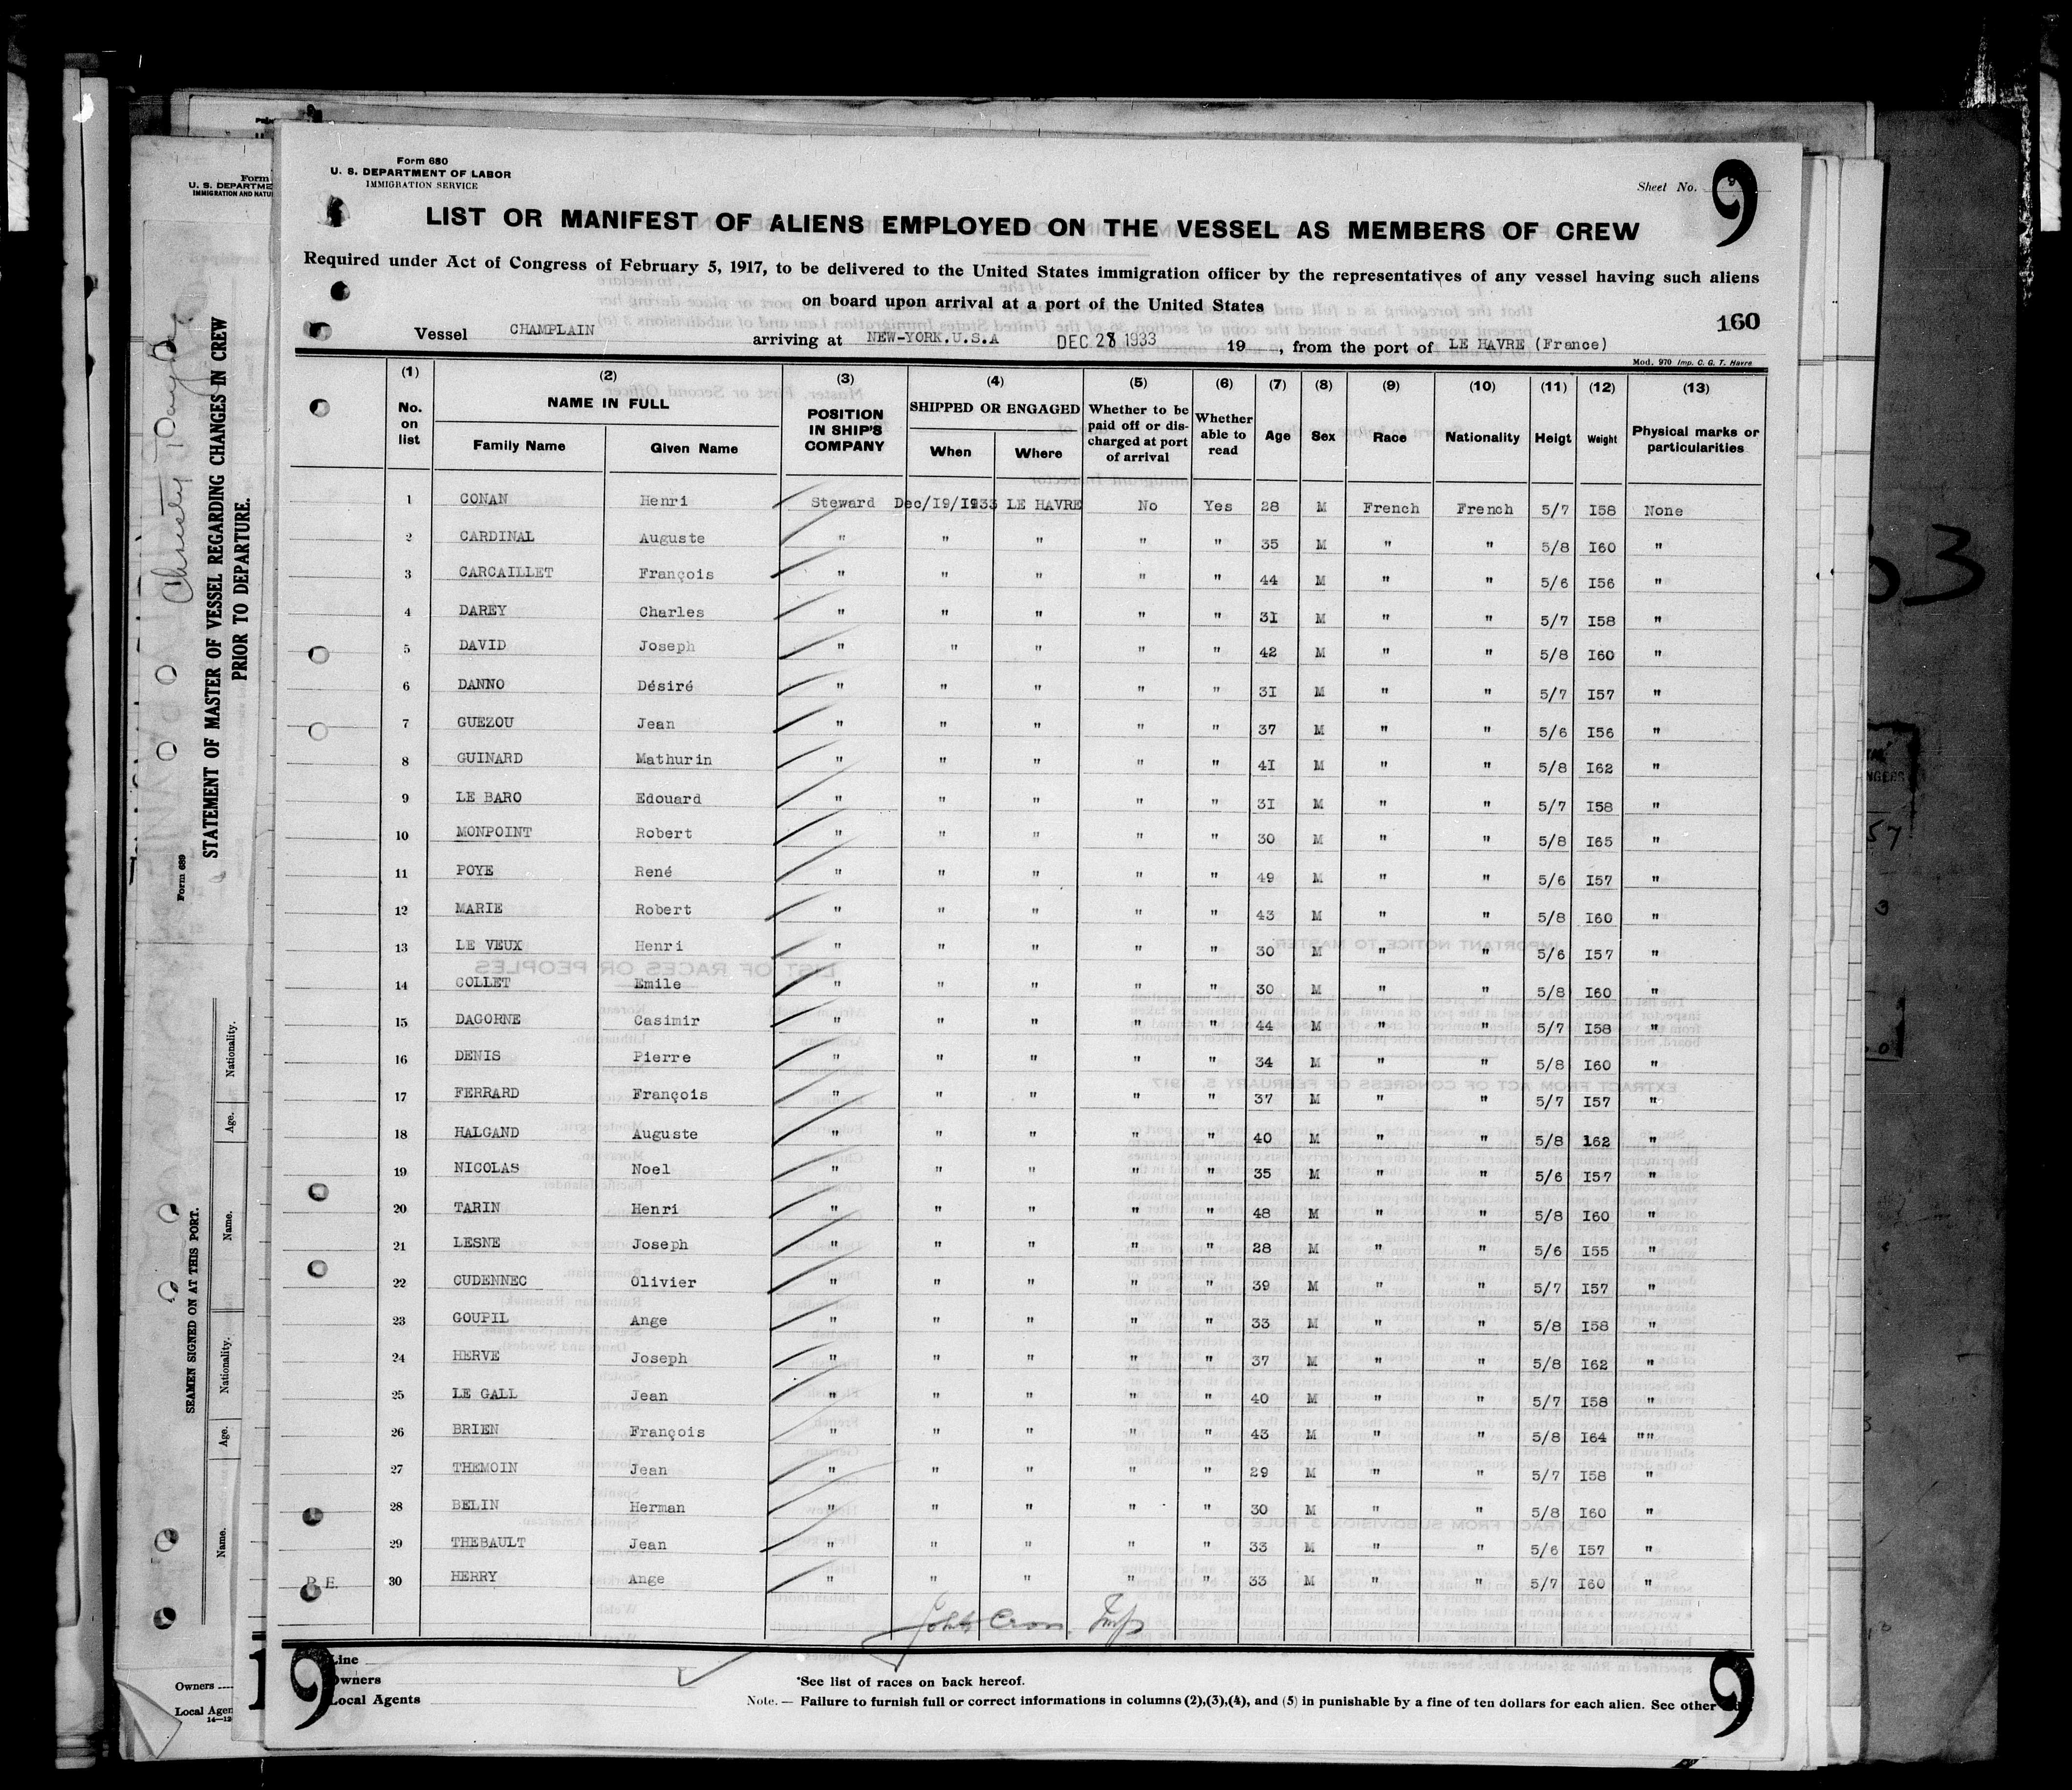 Form 680
U. S. DEPARTMENT OF LABOR
IMMIGRATION SERVICE
Sheet No. 9
LIST OR MANIFEST OF ALIENS EMPLOYED ON THE VESSEL AS MEMBERS OF CREW
Required under Act of Congress of February 5, 1917, to be delivered to the United States immigration officer by the representatives of any vessel having such aliens
on board upon arrival at a port of the United States
160
Vessel CHAMPLAIN arriving at NEW-YORK.U.S.A DEC 28 1933 19 , from the port of LE HAVRE (France)
Mod. 970 Imp. C. G. T. Havre
(1) (2) (3) (4) (5) (6) (7) (8) (9) (10) (11) (12) (13)
No. on list NAME IN FULL Family Name Given Name POSITION IN SHIP'S COMPANY SHIPPED OR ENGAGED When Where Whether to be paid off or discharged at port of arrival Whether able to read Age Sex Race Nationality Heigt Weight Physical marks or particularities
1 CONAN Henri Steward Dec/I9/I933 LE HAVRE No Yes 28 M French French 5/7 I58 None
2 CARDINAL Auguste " " " " " 35 M " " 5/8 I60 "
3 CARCAILLET François " " " " " 44 M " " 5/6 I56 "
4 DAREY Charles " " " " " 3I M " " 5/7 I58 "
5 DAVID Joseph " " " " " 42 M " " 5/8 I60 "
6 DANNO Désiré " " " " " 3I M " " 5/7 I57 "
7 GUEZOU Jean " " " " " 37 M " " 5/6 I56 "
8 GUINARD Mathurin " " " " " 4I M " " 5/8 I62 "
9 LE BARO Edouard " " " " " 3I M " " 5/7 I58 "
10 MONPOINT Robert " " " " " 30 M " " 5/8 I65 "
11 POYE René " " " " " 49 M " " 5/6 I57 "
12 MARIE Robert " " " " " 43 M " " 5/8 I60 "
13 LE VEUX Henri " " " " " 30 M " " 5/6 I57 "
14 COLLET Emile " " " " " 30 M " " 5/8 I60 "
15 DAGORNE Casimir " " " " " 44 M " " 5/7 I58 "
16 DENIS Pierre " " " " " 34 M " " 5/8 I60 "
17 FERRARD François " " " " " 37 M " " 5/7 I57 "
18 HALGAND Auguste " " " " " 40 M " " 5/8 162 "
19 NICOLAS Noel " " " " " 35 M " " 5/6 I57 "
20 TARIN Henri " " " " " 48 M " " 5/8 I60 "
21 LESNE Joseph " " " " " 28 M " " 5/6 I55 "
22 CUDENNEC Olivier " " " " " 39 M " " 5/7 I57 "
23 GOUPIL Ange " " " " " 33 M " " 5/8 I58 "
24 HERVE Joseph " " " " " 37 M " " 5/8 I62 "
25 LE GALL Jean " " " " " 40 M " " 5/7 I58 "
26 BRIEN François " " " " " 43 M " " 5/8 I64 ""
27 THEMOIN Jean " " " " " 29 M " " 5/7 I58 "
28 BELIN Herman " " " " " 30 M " " 5/8 I60 "
29 THEBAULT Jean " " " " " 33 M " " 5/6 I57 "
30 HERRY Ange " " " " " 33 M " " 5/7 I60 "
Line
Owners
Local Agents
*See list of races on back hereof.
Note. — Failure to furnish full or correct informations in columns (2),(3),(4), and (5) in punishable by a fine of ten dollars for each alien. See other
9
9
STATEMENT OF MASTER OF VESSEL REGARDING CHANGES IN CREW
PRIOR TO DEPARTURE.
Form 689
SEAMEN SIGNED ON AT THIS PORT.
Name. Age. Nationality. Name. Age. Nationality.
Owners
14—12